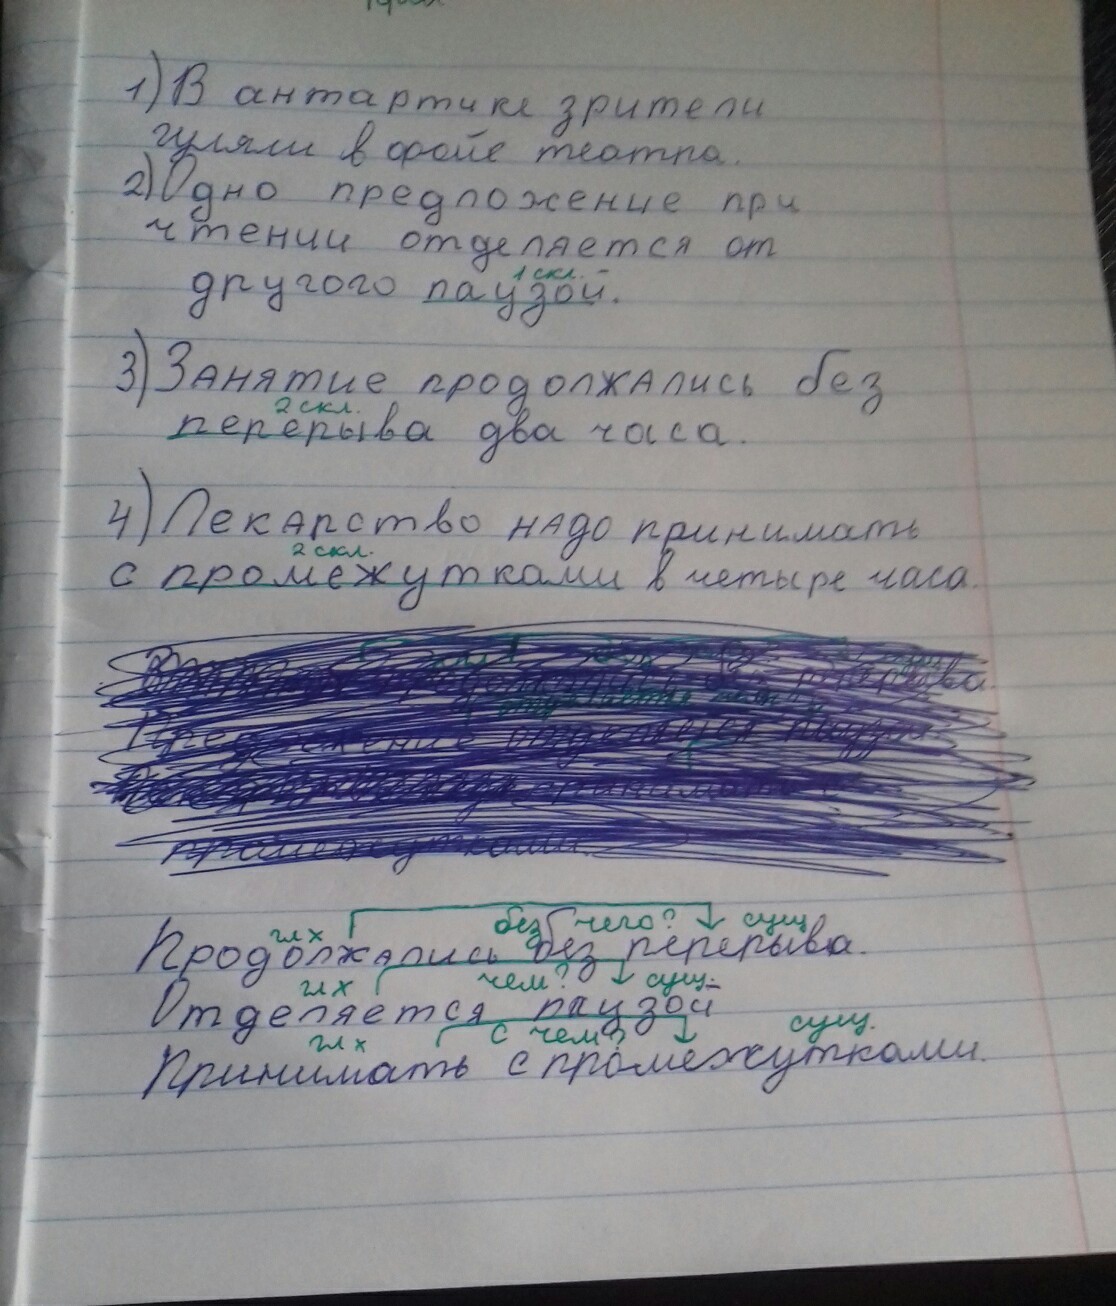 1) В антартике зрители
гуляли в фойе театра.
2) Одно предложение при
чтении отделяется от
1 скл.
другого паузой.
3) Занятие продолжались без
2 скл.
перерыва два часа.
4) Лекарство надо принимать
2 скл.
с промежутками в четыре часа.
промежутками
гл х без чего? сущ
Продолжались без перерыва.
гл х чем? сущ.
Отделяется паузой
гл х с чем? сущ.
Принимать с промежутками.